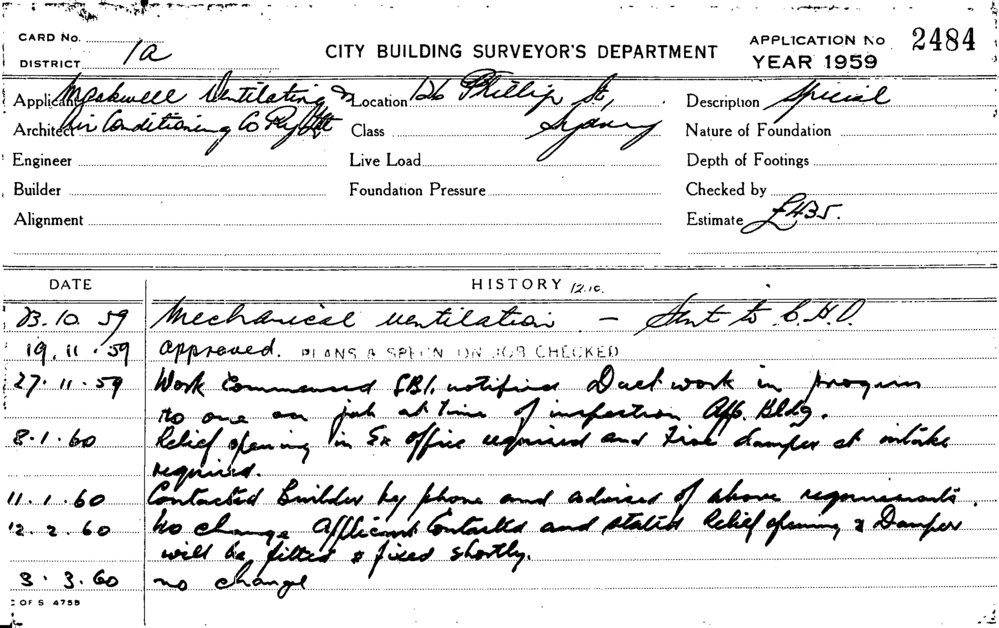 CARD No.
DISTRICT 1a
CITY BUILDING SURVEYOR'S DEPARTMENT
APPLICATION No 2484
YEAR 1959
Applicant Meskwell Ventilating &
Architect Air Conditioning Co Pty Ltt
Engineer
Builder
Alignment
Location 126 Phillip St,
Class Sydney
Live Load
Foundation Pressure
Description Special
Nature of Foundation
Depth of Footings
Checked by
Estimate £435.
DATE HISTORY 12.10.
13.10.59 Mechanical ventilation – Sent to C.H.O.
19.11.59 approved. PLANS & SPEC'N ON JOB CHECKED
27.11.59 Work Commenced S.B.I. notified Duct work in progress
no one on job at time of inspection App. Bldg.
8.1.60 Relief opening in Ex office required and Fire damper at intake
required.
11.1.60 Contacted Builder by phone and advised of above requirements.
12.2.60 no change Applicant Contacted and stated Relief opening & Damper
will be fitted & fixed shortly.
3.3.60 no change
C OF S 4755